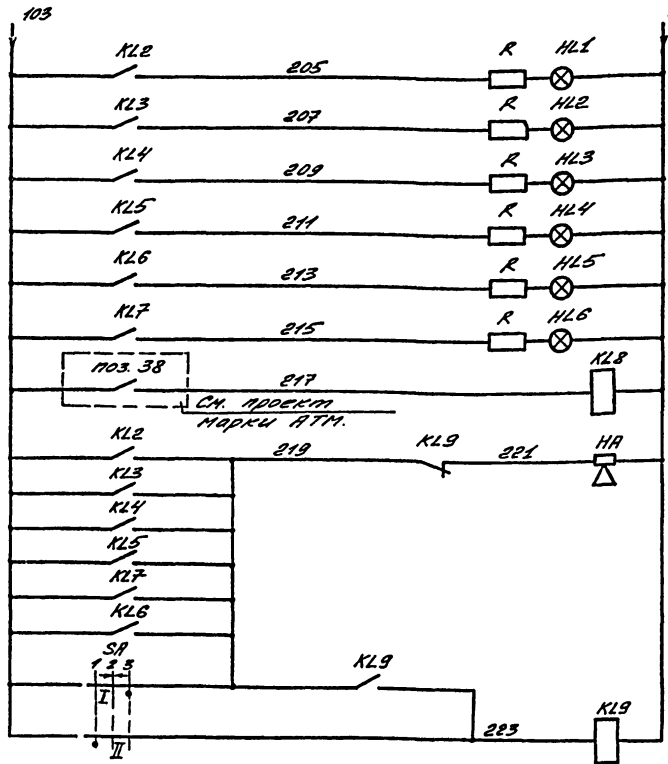 103
KL2 205 R HL1
KL3 207 R HL2
KL4 209 R HL3
KL5 211 R HL4
KL6 213 R HL5
KL7 215 R HL6
поз. 38 217 KL8
См. проект
марки АТМ.
KL2 219 KL9 221 HA
KL3
KL4
KL5
KL7
KL6
SA
1 2 3
I KL9
II 223 KL9